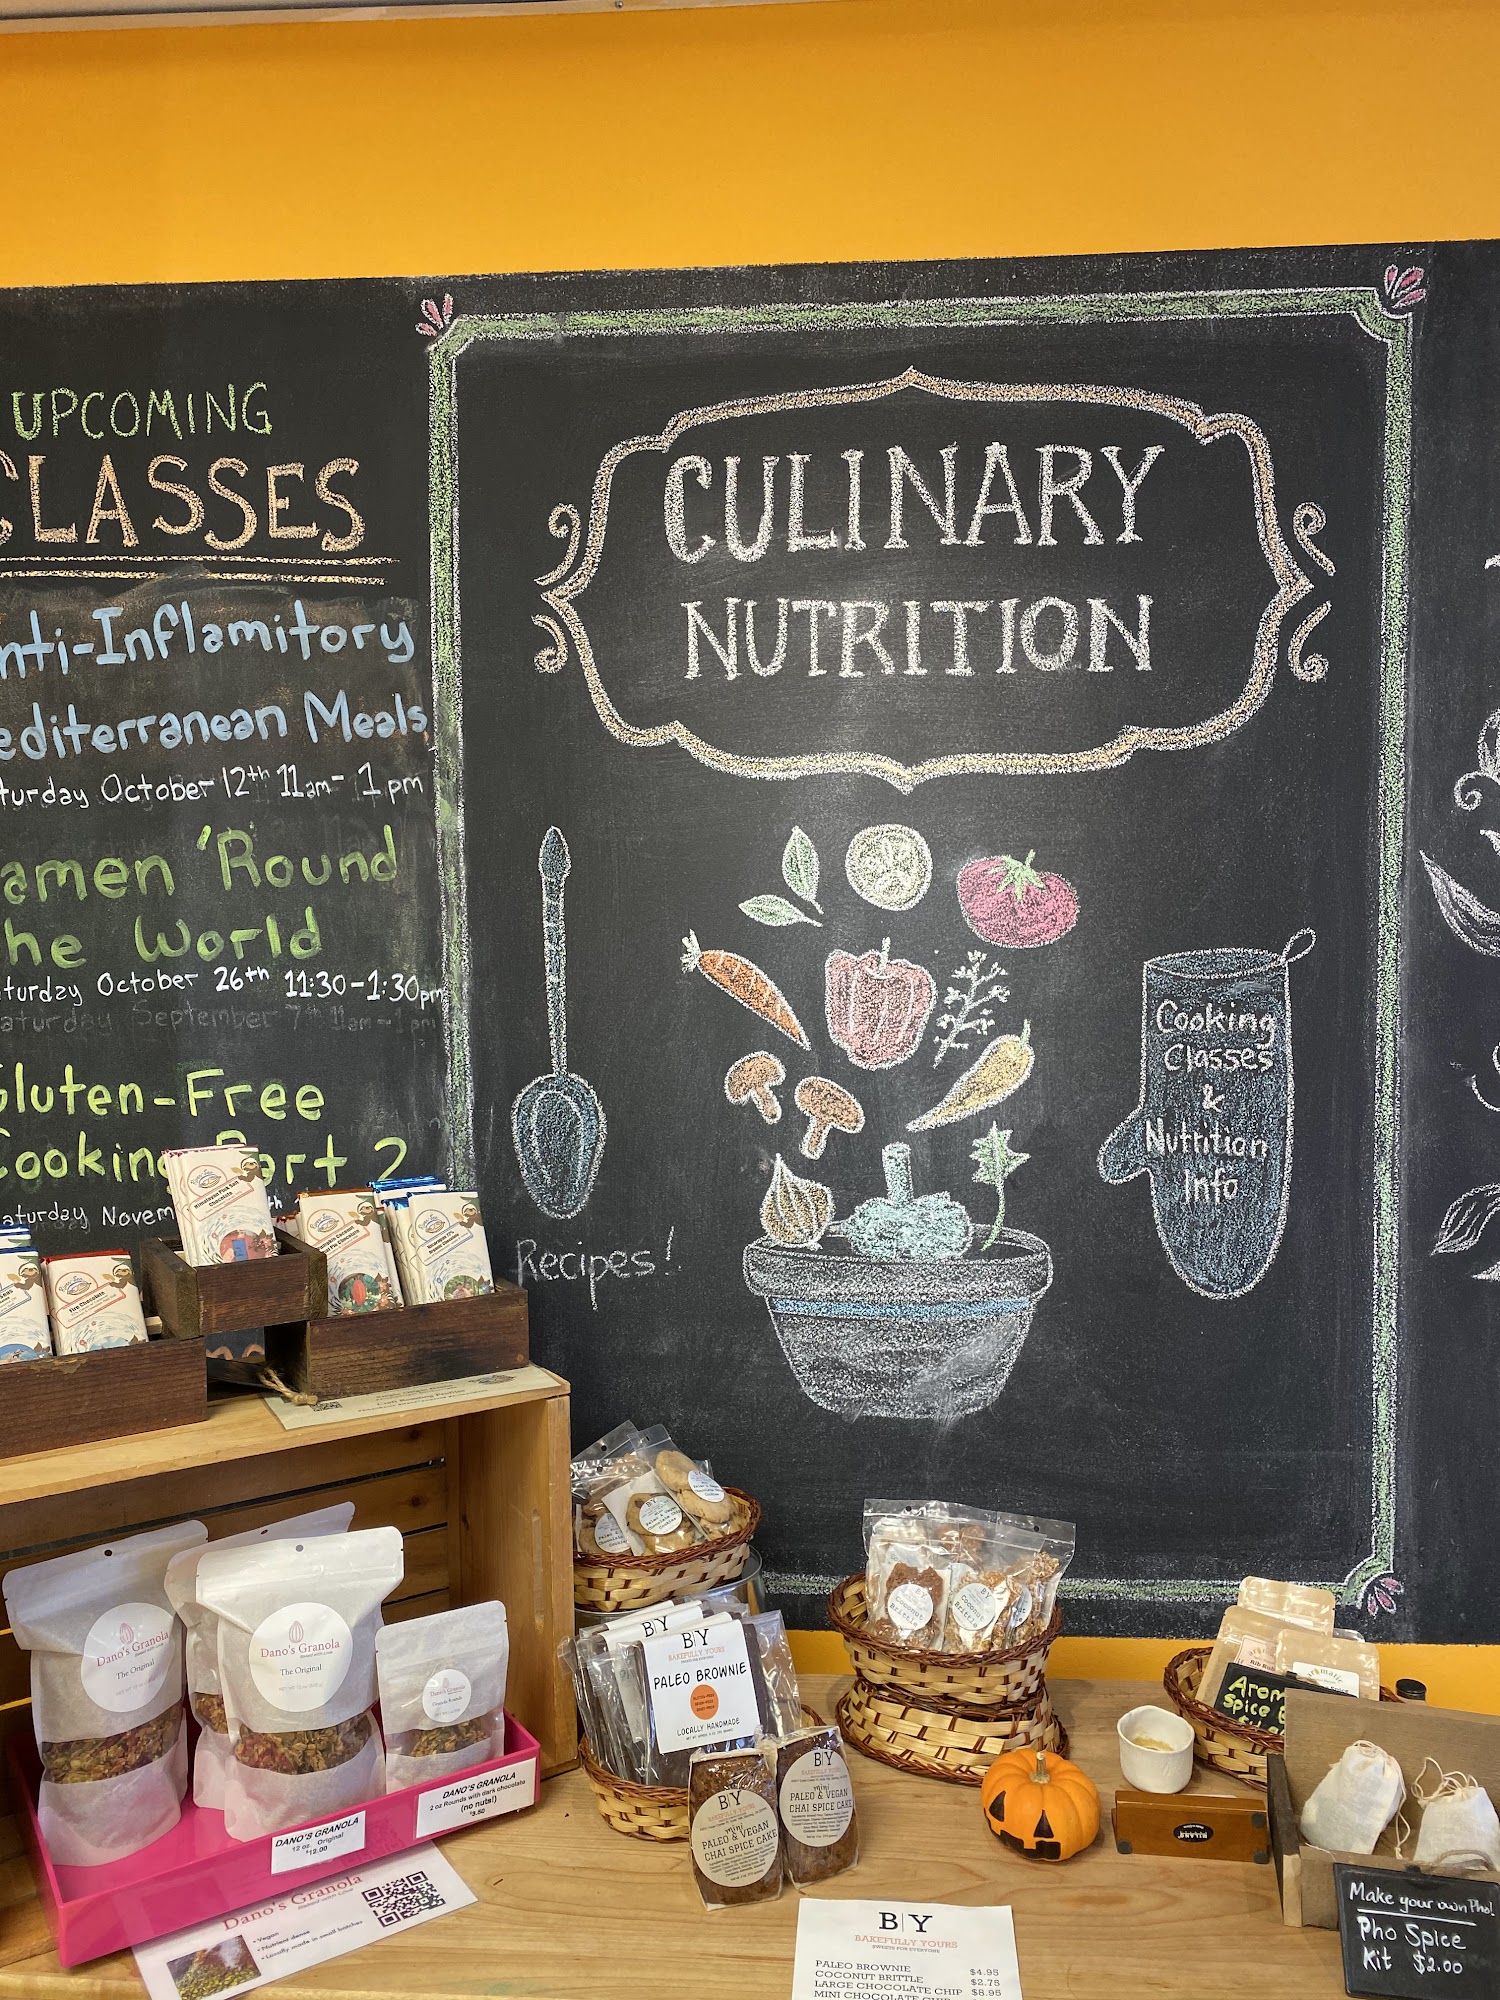 UPCOMING
CLASSES
nti-Inflamitory
editerranean Meals
turday October 12th 11am- 1pm
amen 'Round
the World
turday October 26th 11:30-1:30pm
aturday September 7th 11am-1pm
Gluten-Free
Cooking Part 2
aturday Novem
CULINARY
NUTRITION
Recipes!
Cooking
Classes
&
Nutrition
Info
Himalayan Pink Salt
Chocolate
Fire Chocolate
Dano's Granola
The Original
Dano's Granola
The Original
DANO'S GRANOLA
12 oz Original
$12.00
DANO'S GRANOLA
2 oz Rounds with dark chocolate
(no nuts!)
$3.50
Dano's Granola
• Vegan
• Nutrient dense
• Locally made in small batches
B|Y
BAKEFULLY YOURS
PALEO BROWNIE
LOCALLY HANDMADE
Coconut
Brittle
B|Y
mini
PALEO & VEGAN
CHAI SPICE CAKE
B|Y
mini
PALEO & VEGAN
CHAI SPICE CAKE
B|Y
BAKEFULLY YOURS
SWEETS FOR EVERYONE
PALEO BROWNIE $4.95
COCONUT BRITTLE $2.75
LARGE CHOCOLATE CHIP $8.95
MINI CHOCOLATE CHIP
Arom
Spice
Make your own Pho!
Pho Spice
Kit $2.00